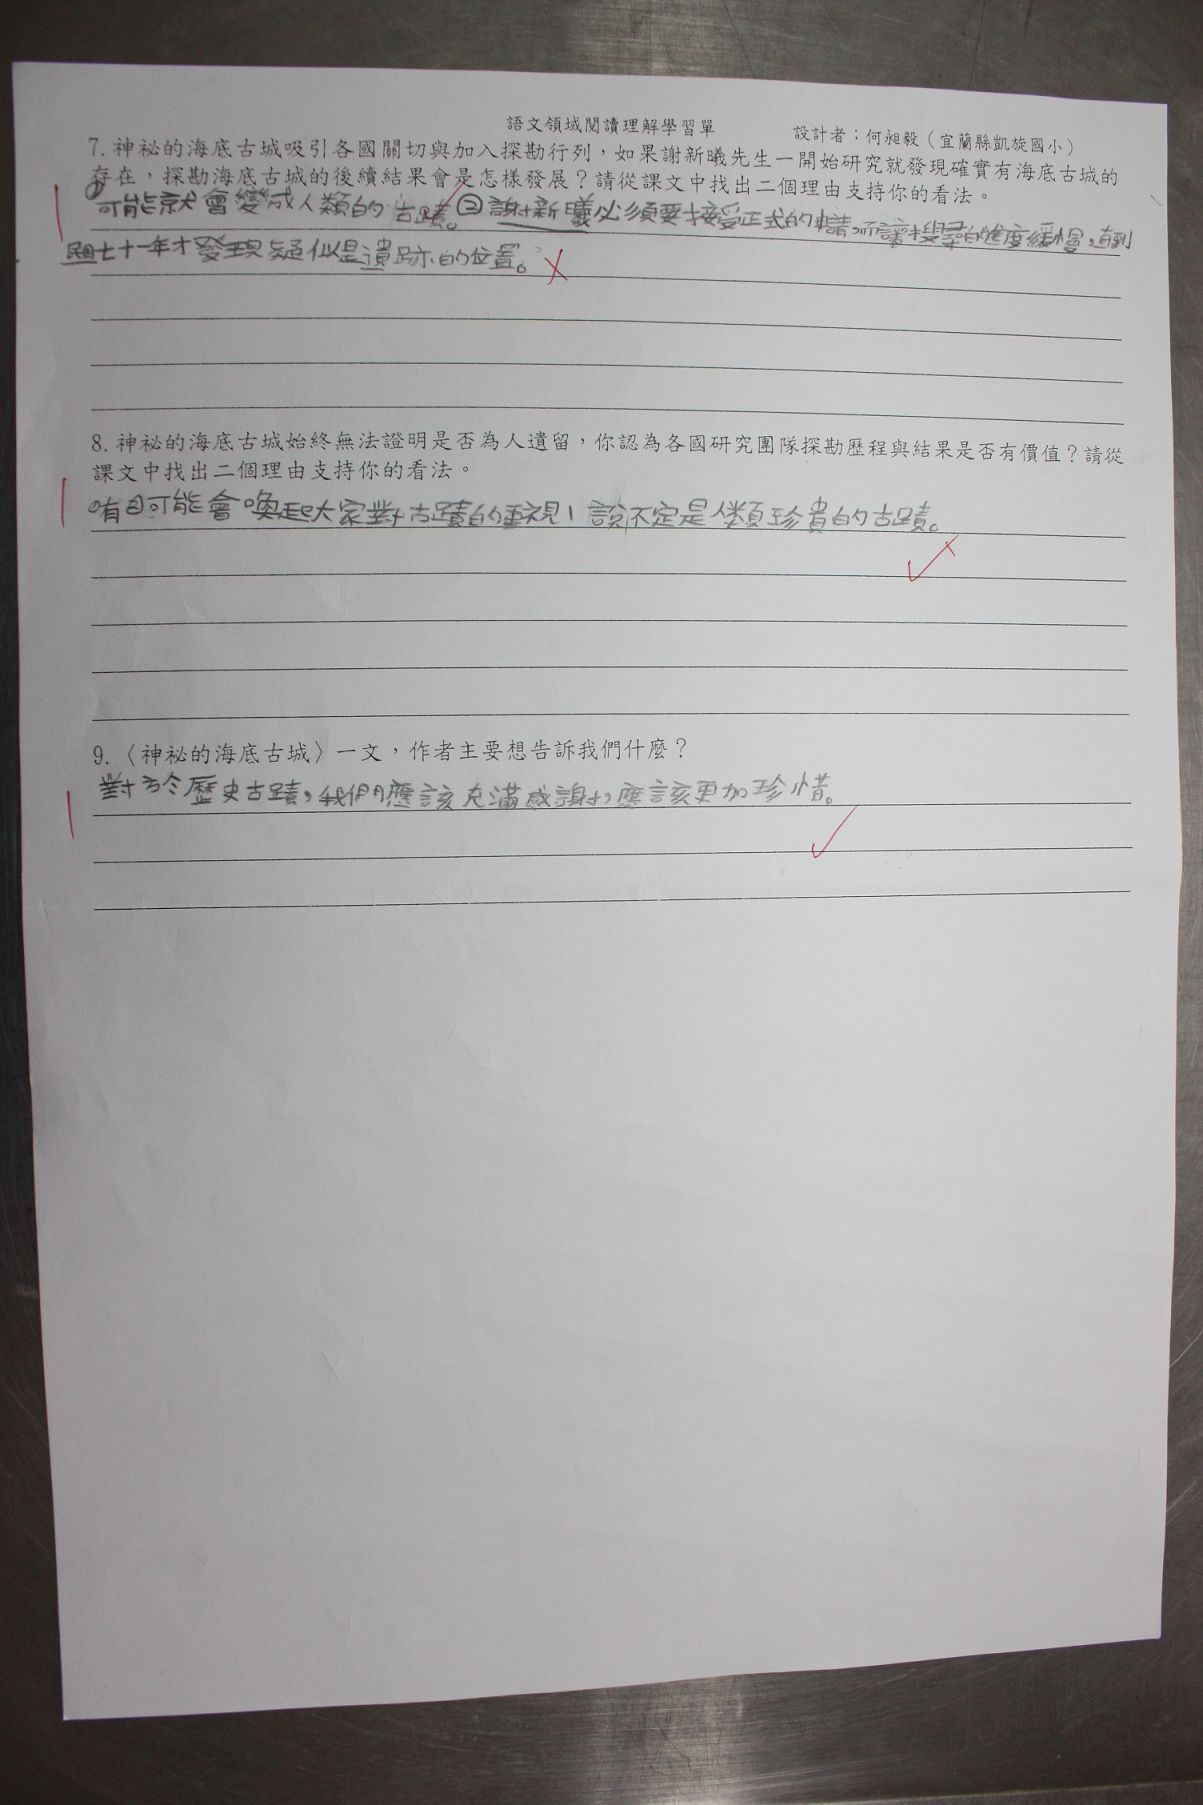 語文領域閱讀理解學習單 設計者：何昶毅（宜蘭縣凱旋國小）
7. 神祕的海底古城吸引各國關切與加入探勘行列，如果謝新曦先生一開始研究就發現確實有海底古城的
存在，探勘海底古城的後續結果會是怎樣發展？請從課文中找出二個理由支持你的看法。
①可能就會變成人類的古蹟。②謝新曦必須要接受正式的申請，而讓搜尋的進度緩慢，直到
民國七十一年才發現疑似是遺跡的位置。
8. 神祕的海底古城始終無法證明是否為人遺留，你認為各國研究團隊探勘歷程與結果是否有價值？請從
課文中找出二個理由支持你的看法。
①有②可能會喚起大家對古蹟的重視，說不定是人類珍貴的古蹟。
9.〈神祕的海底古城〉一文，作者主要想告訴我們什麼？
對於歷史古蹟，我們應該充滿感謝，應該更加珍惜。